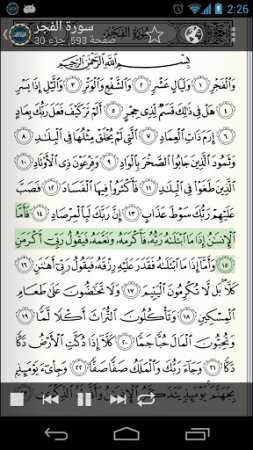 2:26
سورة الفجر
صفحة 593, جزء 30
بِسْمِ ٱللَّهِ ٱلرَّحْمَٰنِ ٱلرَّحِيمِ
وَٱلْفَجْرِ ١ وَلَيَالٍ عَشْرٍ ٢ وَٱلشَّفْعِ وَٱلْوَتْرِ ٣ وَٱلَّيْلِ إِذَا يَسْرِ
٤ هَلْ فِى ذَٰلِكَ قَسَمٌ لِّذِى حِجْرٍ ٥ أَلَمْ تَرَ كَيْفَ فَعَلَ رَبُّكَ بِعَادٍ
٦ إِرَمَ ذَاتِ ٱلْعِمَادِ ٧ ٱلَّتِى لَمْ يُخْلَقْ مِثْلُهَا فِى ٱلْبِلَٰدِ ٨
وَثَمُودَ ٱلَّذِينَ جَابُوا۟ ٱلصَّخْرَ بِٱلْوَادِ ٩ وَفِرْعَوْنَ ذِى ٱلْأَوْتَادِ ١٠
ٱلَّذِينَ طَغَوْا۟ فِى ٱلْبِلَٰدِ ١١ فَأَكْثَرُوا۟ فِيهَا ٱلْفَسَادَ ١٢ فَصَبَّ
عَلَيْهِمْ رَبُّكَ سَوْطَ عَذَابٍ ١٣ إِنَّ رَبَّكَ لَبِٱلْمِرْصَادِ ١٤ فَأَمَّا
ٱلْإِنسَٰنُ إِذَا مَا ٱبْتَلَىٰهُ رَبُّهُۥ فَأَكْرَمَهُۥ وَنَعَّمَهُۥ فَيَقُولُ رَبِّىٓ أَكْرَمَنِ
١٥ وَأَمَّآ إِذَا مَا ٱبْتَلَىٰهُ فَقَدَرَ عَلَيْهِ رِزْقَهُۥ فَيَقُولُ رَبِّىٓ أَهَٰنَنِ ١٦
كَلَّا ۖ بَل لَّا تُكْرِمُونَ ٱلْيَتِيمَ ١٧ وَلَا تَحَٰٓضُّونَ عَلَىٰ طَعَامِ
ٱلْمِسْكِينِ ١٨ وَتَأْكُلُونَ ٱلتُّرَاثَ أَكْلًا لَّمًّا ١٩
وَتُحِبُّونَ ٱلْمَالَ حُبًّا جَمًّا ٢٠ كَلَّآ إِذَا دُكَّتِ ٱلْأَرْضُ دَكًّا
دَكًّا ٢١ وَجَآءَ رَبُّكَ وَٱلْمَلَكُ صَفًّا صَفًّا ٢٢ وَجِا۟ىٓءَ يَوْمَئِذٍۭ